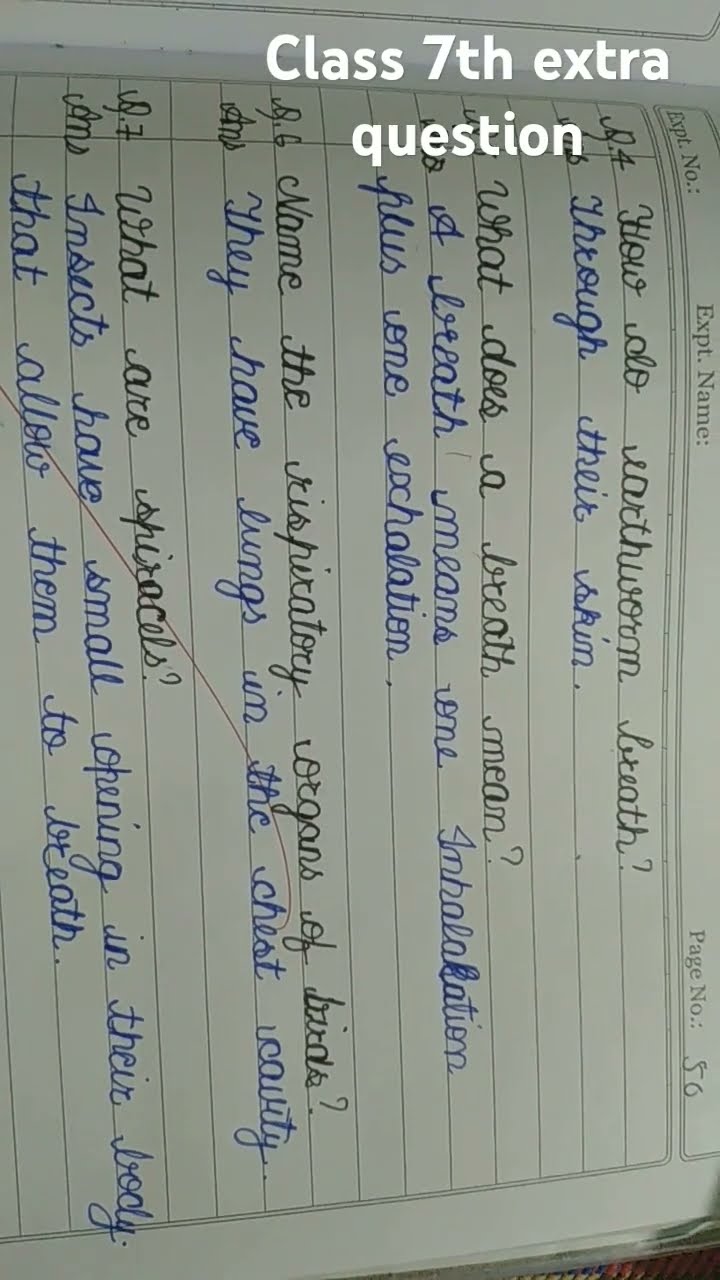 Class 7th extra
question
Expt. No.:
Expt. Name:
Page No.: 56
Q.4 How do earthworm breath?
Ans Through their skin.
What does a breath mean?
A breath means one Inhalakation
plus one exhalation.
Q.6 Name the rispiratory organs of birds?
Ans They have lungs in the chest cavity.
Q.7 What are spiracels?
Ans Insects have small opening in their body.
that allow them to breath.